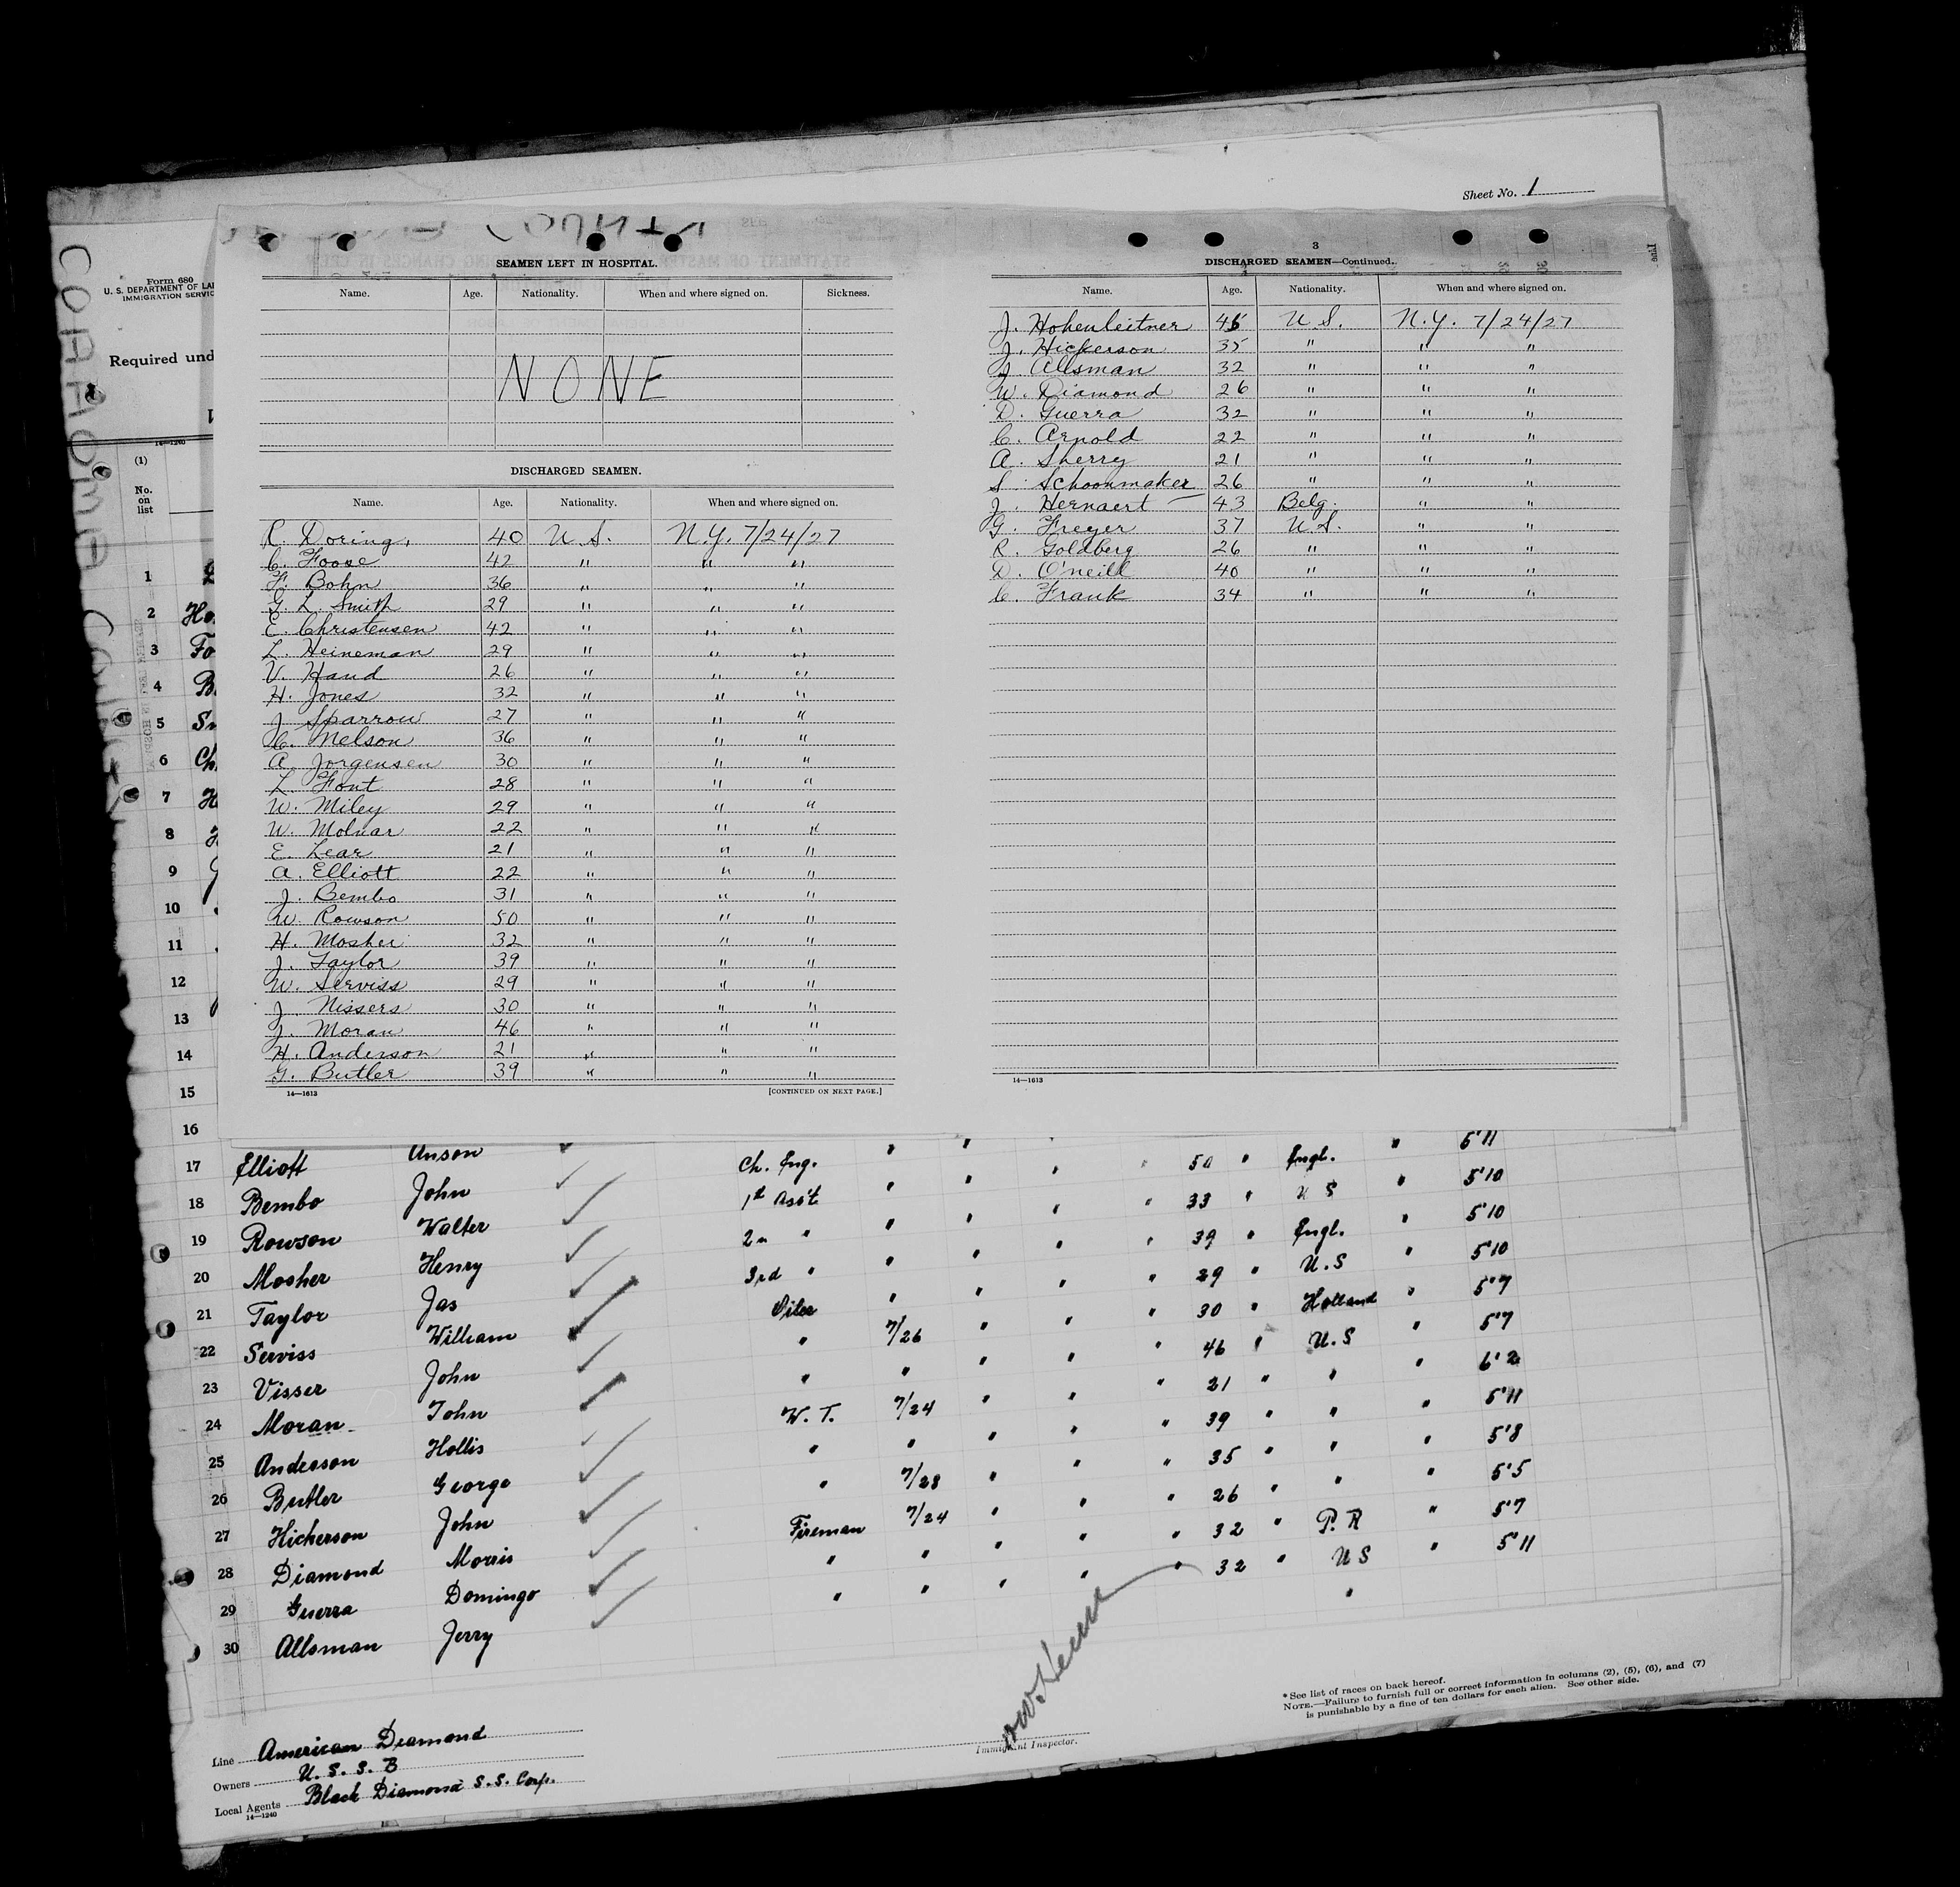 Sheet No. 1
Form 680
U. S. DEPARTMENT OF LA
IMMIGRATION SERVIC
Required und
14—1240
(1)
No.
on
list
SEAMEN LEFT IN HOSPITAL.
Name. Age. Nationality. When and where signed on. Sickness.
NONE
DISCHARGED SEAMEN.
Name. Age. Nationality. When and where signed on.
R. Doring. 40 U.S. N.Y. 7/24/27
C. Foose 42 " " "
F. Bohn 36 " " "
G. L. Smith 29 " " "
E. Christensen 42 " " "
L. Heineman 29 " " "
V. Hand 26 " " "
H. Jones 32 " " "
J. Sparrow 27 " " "
C. Nelson 36 " " "
A. Jorgensen 30 " " "
L. Font 28 " " "
W. Miley 29 " " "
W. Molnar 22 " " "
E. Lear 21 " " "
A. Elliott 22 " " "
J. Bembo 31 " " "
W. Rowson 50 " " "
H. Mosher 32 " " "
J. Taylor 39 " " "
W. Serviss 29 " " "
J. Nissers 30 " " "
J. Moran 46 " " "
H. Anderson 21 " " "
G. Butler 39 " " "
14—1613 [CONTINUED ON NEXT PAGE.]
3
DISCHARGED SEAMEN—Continued.
Name. Age. Nationality. When and where signed on.
J. Hohenleitner 45 U.S. N.Y. 7/24/27
J. Hickerson 35 " " "
J. Allsman 32 " " "
W. Diamond 26 " " "
D. Guerra 32 " " "
C. Arnold 22 " " "
A. Sherry 21 " " "
S. Schoonmaker 26 " " "
J. Hernaert 43 Belg. " "
G. Freyer 37 U.S. " "
R. Goldberg 26 " " "
D. O'neill 40 " " "
C. Frank 34 " " "
14—1613
1
2 Ho
3 Fo
4 B
5 Sm
6 Ch
7 H
8 H
9
10
11
12
13
14
15
16 5'11
17 Elliott Anson Ch. Eng. " " " " 50 " Engl. " 5'10
18 Bembo John 1st Ass't " " " " 33 " U S " 5'10
19 Rowson Walter 2n " " " " " 39 " Engl. " 5'10
20 Mosher Henry 3rd " " " " " 29 " U.S " 5'7
21 Taylor Jas Oiler " " " " 30 " Holland " 5'7
22 Serviss William " 7/26 " " " 46 " U.S " 6'2
23 Visser John " " " " " 21 " " " 5'11
24 Moran John W. T. 7/24 " " " 39 " " " 5'8
25 Anderson Hollis " " " " " 35 " " " 5'5
26 Butler George " 7/28 " " " 26 " " " 5'7
27 Hickerson John Fireman 7/24 " " " 32 " P. R " 5'11
28 Diamond Morris " " " " " 32 " U S
29 Guerra Domingo " " " " "
30 Allsman Jerry
*See list of races on back hereof.
NOTE.—Failure to furnish full or correct information in columns (2), (5), (6), and (7)
is punishable by a fine of ten dollars for each alien. See other side.
Immigrant Inspector.
Line American Diamond
Owners U. S. S. B
Local Agents Black Diamond S.S. Corp.
14—1240